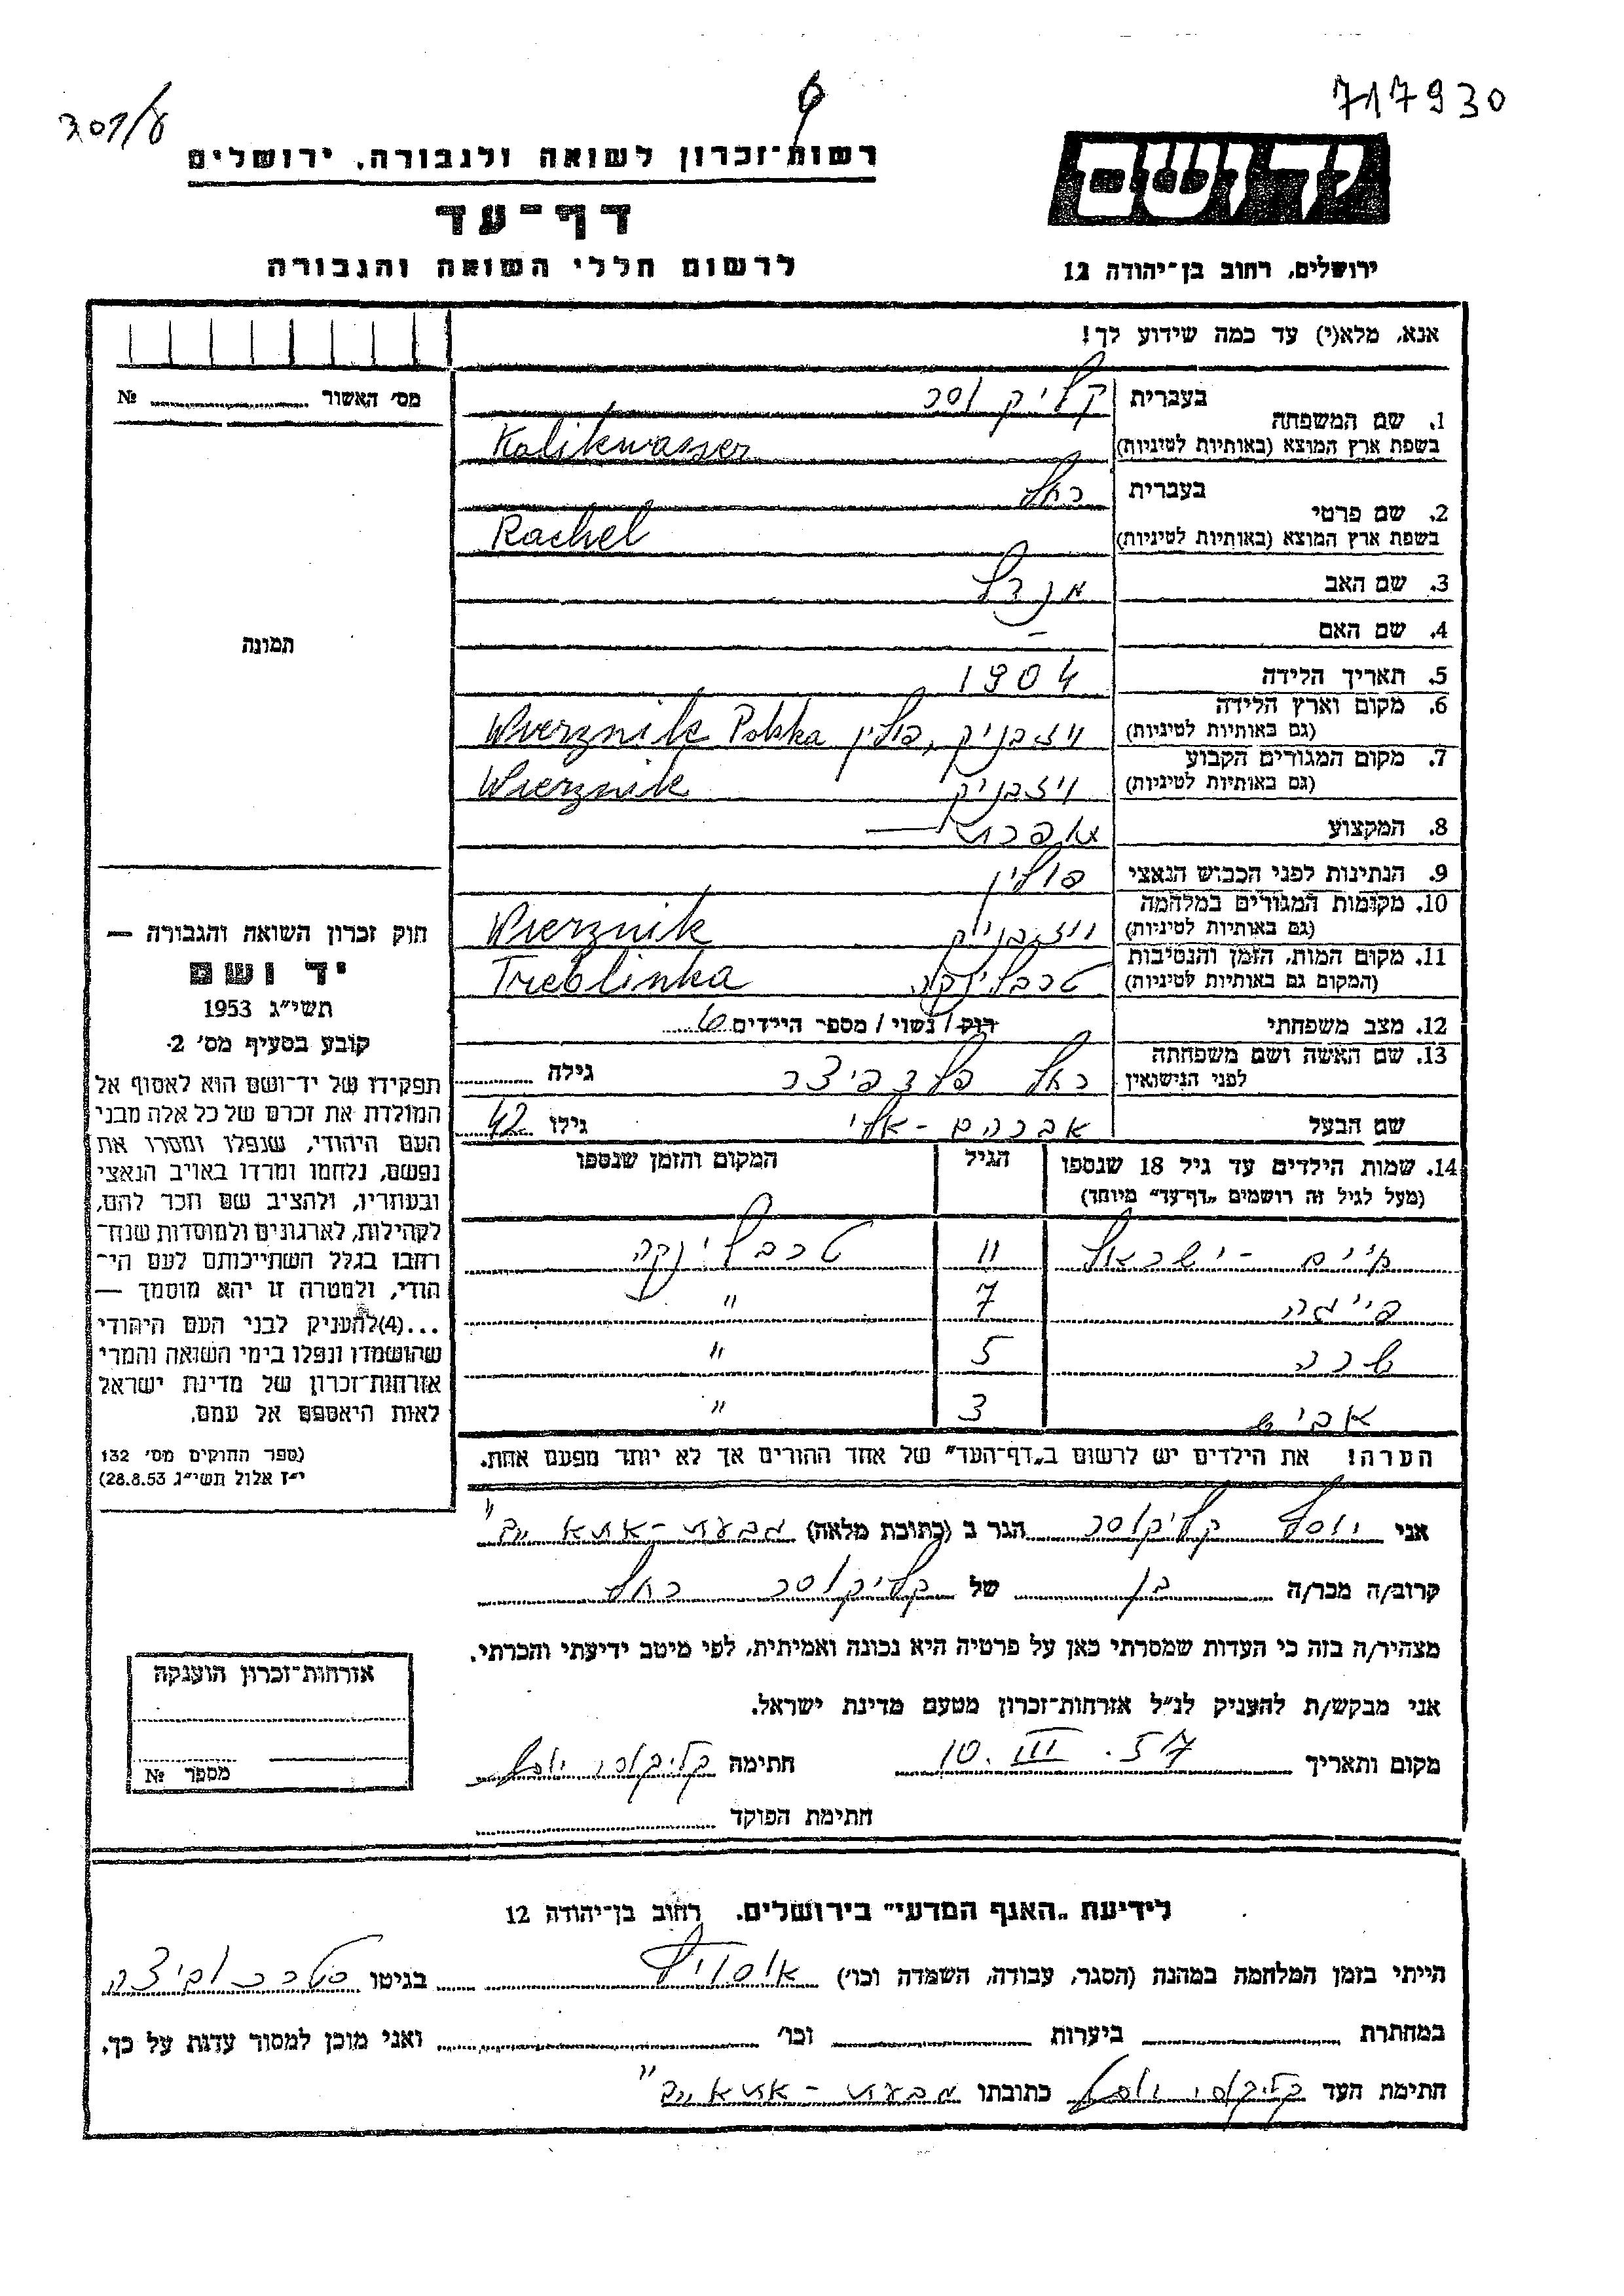 717930
רשות־זכרון לשואה ולגבורה, ירושלים
דף־עד
לרשום חללי השואה והגבורה
יד ושם
ירושלים, רחוב בן־יהודה 12
אנא, מלא(י) עד כמה שידוע לך!
מס׳ האשור № 
תמונה
חוק זכרון השואה והגבורה —
יד ושם
תשי״ג 1953
קובע בסעיף מס׳ 2.
תפקידו של יד־ושם הוא לאסוף אל
המולדת את זכרם של כל אלה מבני
העם היהודי, שנפלו ומסרו את
נפשם, נלחמו ומרדו באויב הנאצי
ובעוזריו, ולהציב שם וזכר להם,
לקהילות, לארגונים ולמוסדות שנח־
רבו בגלל השתייכותם לעם הי־
הודי, ולמטרה זו יהא מוסמך —
...(4)להעניק לבני העם היהודי
שהושמדו ונפלו בימי השואה והמרי
אזרחות־זכרון של מדינת ישראל
לאות היאספם אל עמם.
(ספר החוקים מס׳ 132
י״ז אלול תשי״ג 28.8.53)
1. שם המשפחה בעברית קליקוסר
בשפת ארץ המוצא (באותיות לטיניות) Kalikwasser
2. שם פרטי בעברית רחל
בשפת ארץ המוצא (באותיות לטיניות) Rachel
3. שם האב מנדל
4. שם האם –
5. תאריך הלידה 1904
6. מקום וארץ הלידה (גם באותיות לטיניות) ויזבניק, פולין Wierznik Polska
7. מקום המגורים הקבוע (גם באותיות לטיניות) ויזבניק Wierznik
8. המקצוע
9. הנתינות לפני הכבוש הנאצי פולין
10. מקומות המגורים במלחמה (גם באותיות לטיניות) ויזבניק Wierznik
11. מקום המות, הזמן והנסיבות (המקום גם באותיות לטיניות) טרבלינקה Treblinka
12. מצב משפחתי רוק / נשוי / מספר הילדים 6
13. שם האשה ושם משפחתה לפני הנישואין רחל פלדפיצר גילה
שם הבעל אברהם - אלי גילו 42
14. שמות הילדים עד גיל 18 שנספו (מעל לגיל זה רושמים „דף־עד״ מיוחד) הגיל המקום והזמן שנספו
חיים - ישראל 11 טרבלינקה
פייגה 7 "
שרה 5 "
3 "
הערה: את הילדים יש לרשום ב„דף־העד״ של אחד ההורים אך לא יותר מפעם אחת.
אני יוסף קליקוסר הגר ב (כתובת מלאה) גבעת - אתא
קרוב/ה מכר/ה בן של קליקוסר רחל
מצהיר/ה בזה כי העדות שמסרתי כאן על פרטיה היא נכונה ואמיתית, לפי מיטב ידיעתי והכרתי.
אני מבקש/ת להעניק לנ״ל אזרחות־זכרון מטעם מדינת ישראל.
מקום ותאריך 10. III. 57 חתימה קליקוסר יוסף
חתימת הפוקד
אזרחות־זכרון הוענקה
מספר №
לידיעת „האגף המדעי״ בירושלים, רחוב בן־יהודה 12
הייתי בזמן המלחמה במחנה (הסגר, עבודה, השמדה וכו׳) בגיטו סטרכוביצה
במחתרת ביערות וכו׳ ואני מוכן למסור עדות על כך.
חתימת העד קליקוסר יוסף כתובתו גבעת - אתא